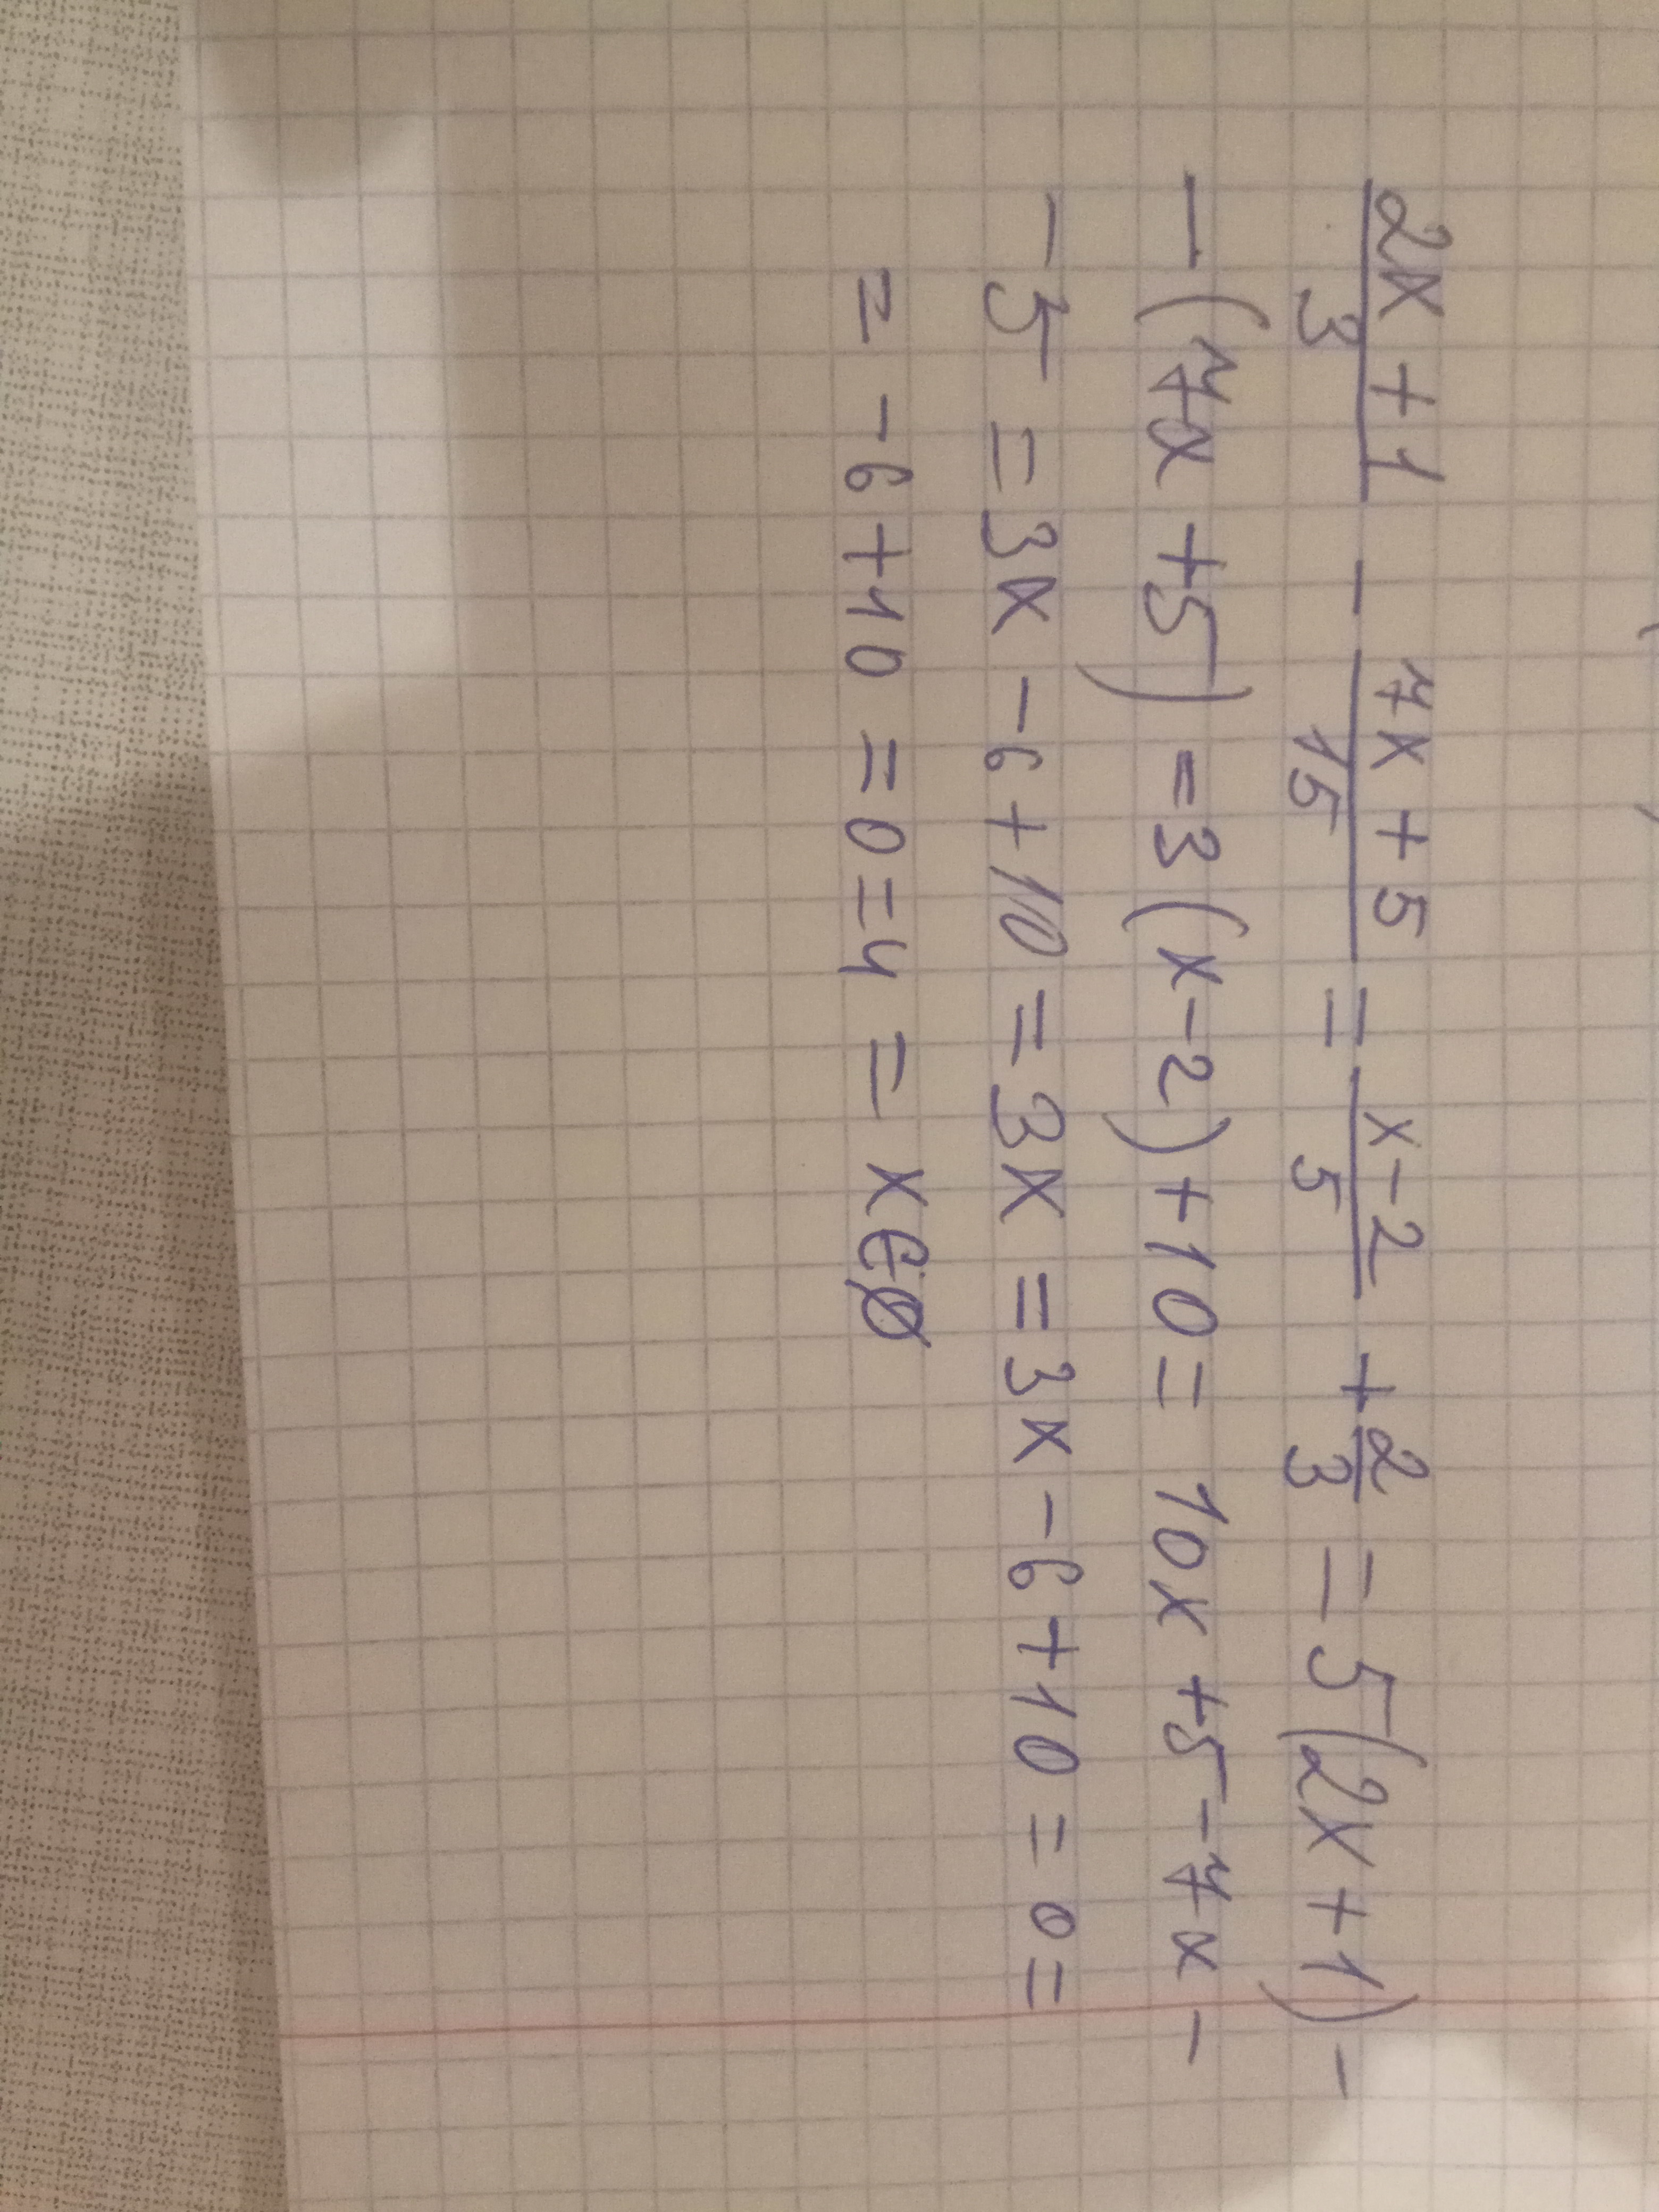 2x + 1 / 3 - 7x + 5 / 15 = x - 2 / 5 + 2/3 = 5(2x + 1) -
- (7x + 5) = 3(x - 2) + 10 = 10x + 5 - 7x -
- 5 = 3x - 6 + 10 = 3x = 3x - 6 + 10 = 0 =
= -6 + 10 = 0 = 4 = x ∈ ∅